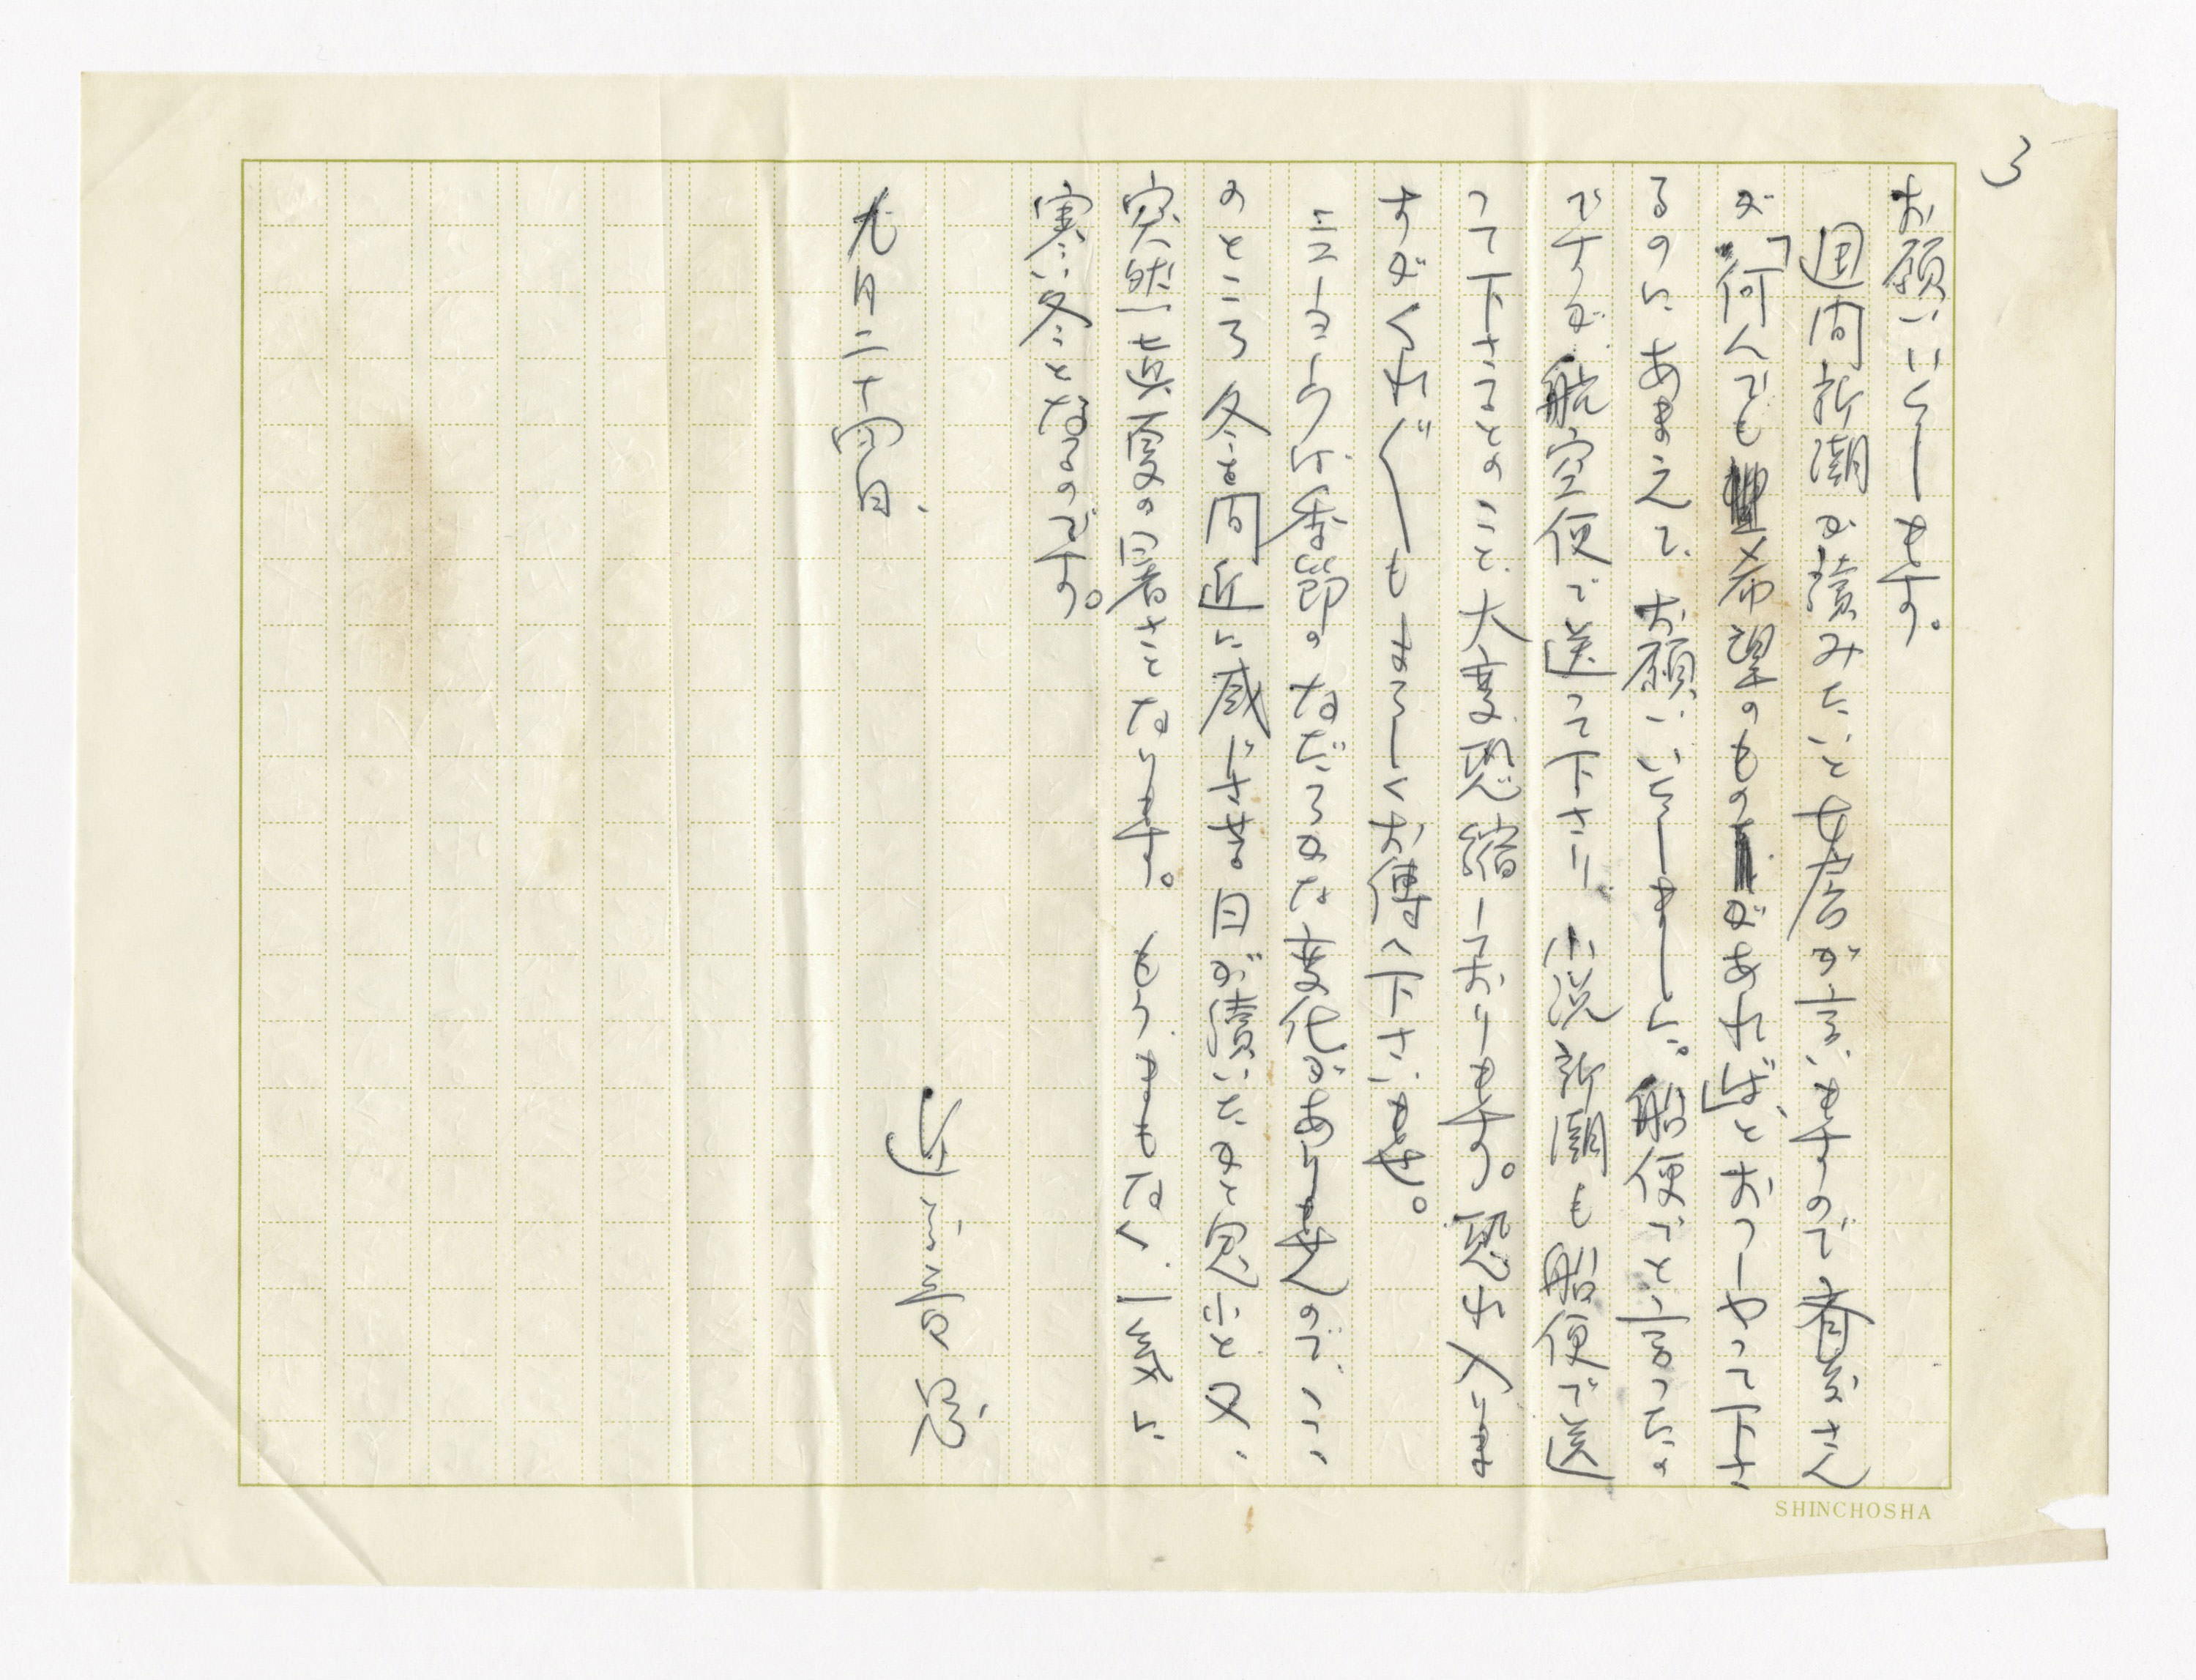 3
お願いいたします。
週間新潮が読みたいと女房が言いますので、斉藤さん
が「何んでも希望のものがあれば」とおっしゃって下さ
るのにあまえて、お願いいたしました。船便でと言ったの
ですが、航空便で送って下さり、小説新潮も船便で送
って下さるとのこと、大変恐縮しております。恐れ入りま
すがくれぐれもよろしくお傳へ下さいませ。
ニューヨークは季節のなだらかな変化がありませんので、ここ
のところ冬を間近に感じさせる日が續いたかと思ふと又、
突然、真夏の暑さとなります。もうまもなく、一気に
寒い冬となるのです。
九月二十四日、
SHINCHOSHA